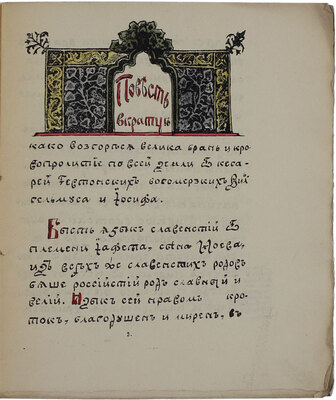 Повѣсть
вкратцѣ
како возгорѣся велика брань и кро
вопролитїе по всей земли ѿ кеса
рей Тевтонскихъ богомерзкихъ Вил
гельмуса и Іосифа.
Бысть языкъ славенстїй ѿ
племени Іафета, сына Ноева,
и ѿ всѣхъ же славенстихъ родовъ
бяше россїйстїй родъ славный и
велїй. Языкъ сей нравомъ кро
токъ, благодушенъ и миренъ, въ